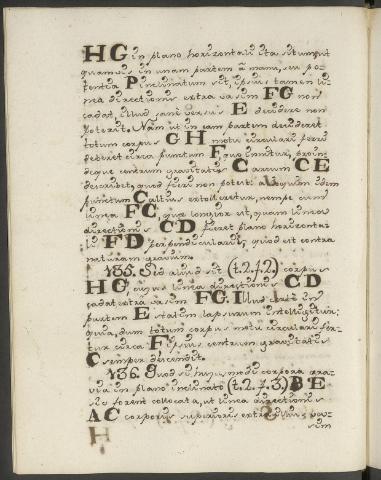 HG in plano horizontali ita sit, ut sit
quamvis in unam partem à manu, seu po-
tentia P inclinatum sit, ipsius tamen li-
nea directionis extra basim FG non
cadat, illud sanè versus E decidere non
poterit. Nam ut in eam partem decideret
totum corpus GH motu circulari ferri
deberet circa punctum F, quo innititur, proin-
deque centrum gravitatis C arcum CE
describeret, quod fieri non potest absquam idem
punctum C altius extolleretur, nempe cum
linea FC, quæ longior est, quam linea
directionis CD fieret plano horizonta-
li FD perpendicularis, quod est contra
naturam gravium.
135. Sed aliud sit (t.2.f.2.) corpus
HG cujus linea directionis CD
cadat extra basim FG. Illud certè in
partem E statim lapsurum intelligitur;
quia, dum totum corpus motu circulari fer-
tur circa F ipsius centrum gravitatis
C semper descendit.
136. Quod si hujusmodi corpora gra-
via in plano inclinato (t.2.f.3.) BE
sic forent collocata, ut linea directionis
AC corporis superioris extra illius ba-
sim